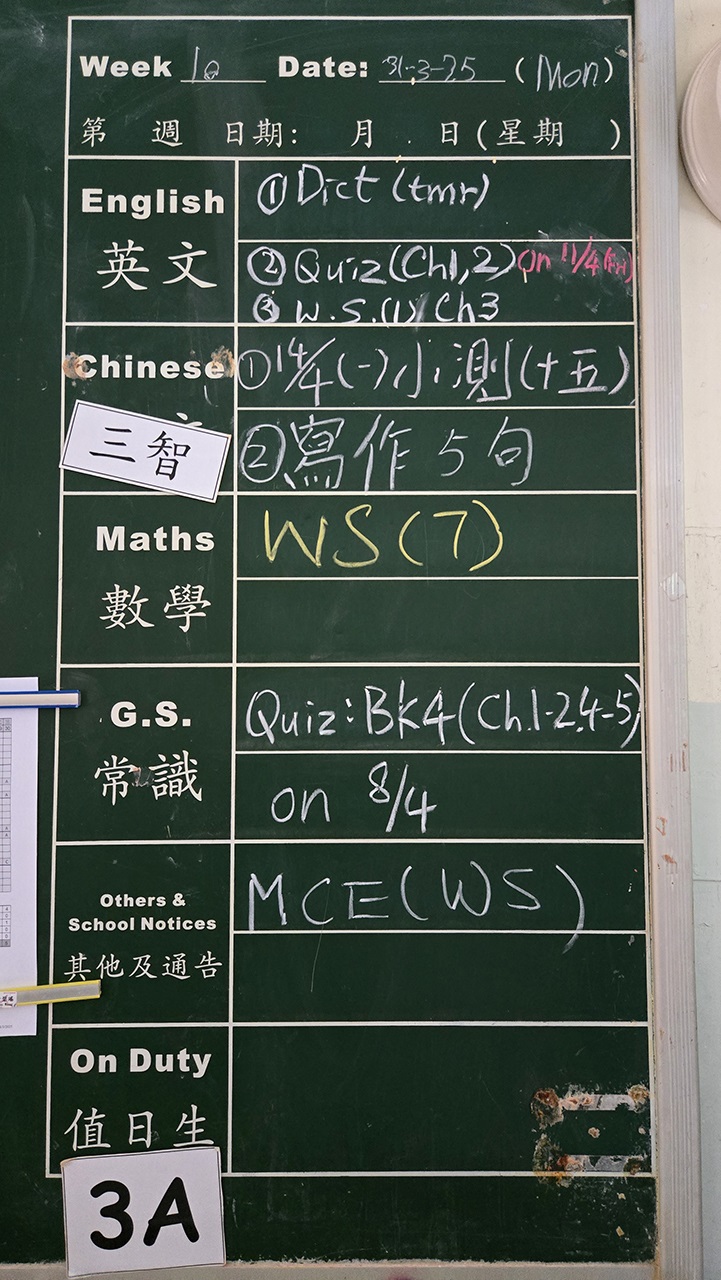 Week 1e Date: 31-3-25 (Mon)
第 週 日期: 月 日(星期 )
English
英文
①Dict (tmr)
②Quiz(Ch1,2) on 11/4 (Fri)
③ W.S.(1) Ch3
Chinese
①14/4(一)小測(十五)
三智
②寫作5句
Maths
數學
WS(7)
G.S.
常識
Quiz:BK4(Ch.1-2,4-5)
on 8/4
Others &
School Notices
其他及通告
MCE(WS)
On Duty
值日生
3A